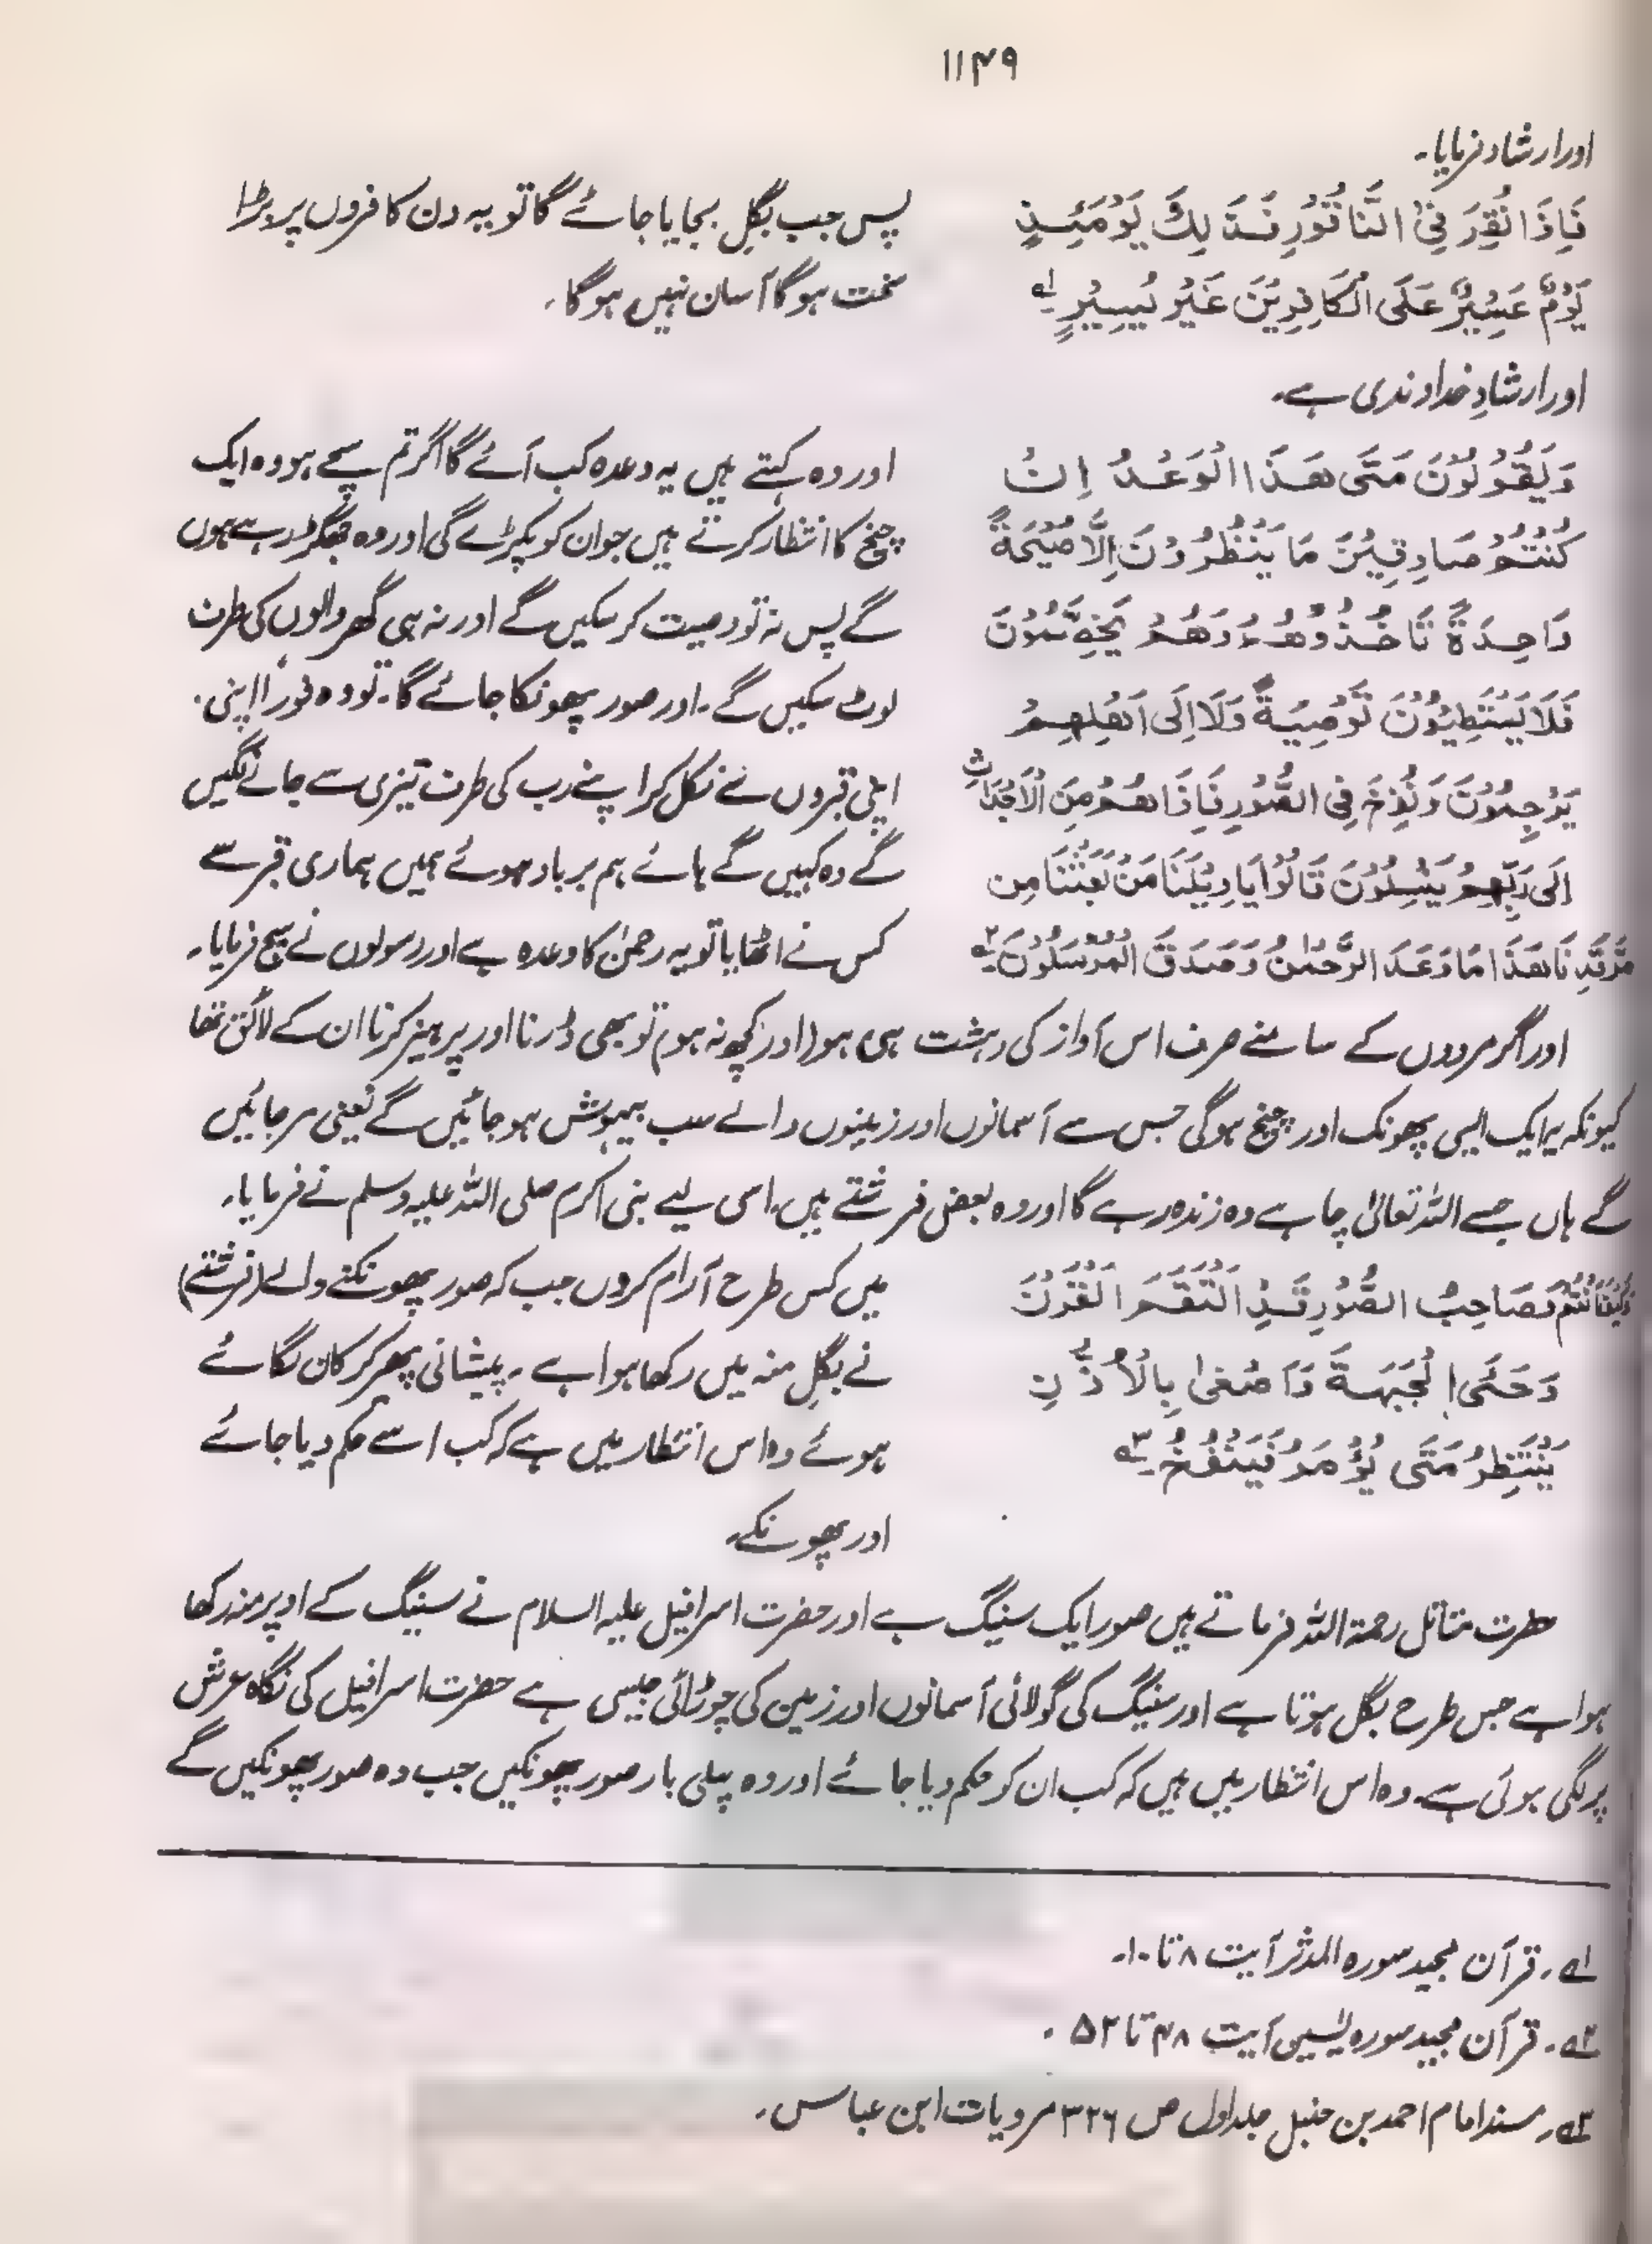 ۱۱۴۹
اور ارشاد فرمایا۔
فَاِذَا نُقِرَ فِی النَّاقُوْرِ فَذَالِكَ یَوْمَئِذٍ
یَوْمٌ عَسِیْرٌ عَلَی الْكَافِرِیْنَ غَیْرُ یَسِیْرٍ ۱ے
پس جب بگل بجایا جائے گا تو یہ دن کافروں پر بڑا
سخت ہوگا آسان نہیں ہوگا۔
اور ارشادِ خداوندی ہے۔
وَیَقُوْلُوْنَ مَتٰی هٰذَا الْوَعْدُ اِنْ
كُنْتُمْ صَادِقِیْنَ مَا یَنْظُرُوْنَ اِلَّا صَیْحَةً
وَاحِدَةً تَاْخُذُوْهُمْ وَهُمْ یَخِصِّمُوْنَ
فَلَا یَسْتَطِیْعُوْنَ تَوْصِیَةً وَلَا اِلٰی اَهْلِهِمْ
یَرْجِعُوْنَ وَنُفِخَ فِی الصُّوْرِ فَاِذَا هُمْ مِنَ الْاَجْدَاثِ
اِلٰی رَبِّهِمْ یَنْسِلُوْنَ قَالُوْا یَا وِیْلَنَا مَنْ بَعَثَنَا مِن
مَّرْقَدِنَا هٰذَا مَا وَعَدَ الرَّحْمٰنُ وَصَدَقَ الْمُرْسَلُوْنَ ۲ے
اور وہ کہتے ہیں یہ وعدہ کب آئے گا اگر تم سچے ہو وہ ایک
چیخ کا انتظار کرتے ہیں جو ان کو پکڑے گی اور وہ جھگڑ رہے ہوں
گے پس نہ تو وصیت کر سکیں گے اور نہ ہی گھر والوں کی طرف
لوٹ سکیں گے۔ اور صور پھونکا جائے گا۔ تو وہ فوراً اپنی
اپنی قبروں سے نکل کر اپنے رب کی طرف تیزی سے جانے لگیں
گے وہ کہیں گے ہائے ہم برباد ہوئے ہمیں ہماری قبر سے
کس نے اٹھایا تو یہ رحمٰن کا وعدہ ہے اور رسولوں نے سچ فرمایا۔
اور اگر مردوں کے سامنے صرف اس آواز کی دہشت ہی ہو (اور کچھ نہ ہو) تو بھی ڈرنا اور پرہیز کرنا ان کے لائق تھا
کیونکہ یہ ایک ایسی پھونک اور چیخ ہوگی جس سے آسمانوں اور زمینوں والے سب بیہوش ہو جائیں گے یعنی مر جائیں
گے ہاں جسے اللہ تعالیٰ چاہے وہ زندہ رہے گا اور وہ بعض فرشتے ہیں۔ اسی لیے نبی اکرم صلی اللہ علیہ وسلم نے فرمایا۔
وَصَاحِبُ الصُّوْرِ قَدِ الْتَقَمَ الْقَرْنَ
وَحَنَی الْجَبْهَةَ وَاَصْغٰی بِالْاُذُنِ
یَنْتَظِرُ مَتٰی یُؤْمَرُ فَیَنْفُخُ ۳ے
میں کس طرح آرام کروں جب کہ صور پھونکنے والے (فرشتے)
نے بگل منہ میں رکھا ہوا ہے۔ پیشانی پھیر کر کان لگائے
ہوئے وہ اس انتظار میں ہے کہ کب اسے حکم دیا جائے
اور پھونکے۔
حضرت مقاتل رحمۃ اللہ فرماتے ہیں صور ایک سینگ ہے اور حضرت اسرافیل علیہ السلام نے سینگ کے اوپر منہ رکھا
ہوا ہے جس طرح بگل ہوتا ہے اور سینگ کی گولائی آسمانوں اور زمین کی چوڑائی جیسی ہے حضرت اسرافیل کی نگاہ عرش
پر لگی ہوئی ہے۔ وہ اس انتظار میں ہیں کہ کب ان کو حکم دیا جائے اور وہ پہلی بار صور پھونکیں جب وہ صور پھونکیں گے
۱ے۔ قرآن مجید سورہ المدثر آیت ۸ تا ۱۰۔
۲ے۔ قرآن مجید سورہ یٰسیی آیت ۴۸ تا ۵۲۔
۳ے۔ مسند امام احمد بن حنبل جلد اول ص ۳۲۶ مرویات ابن عباس۔